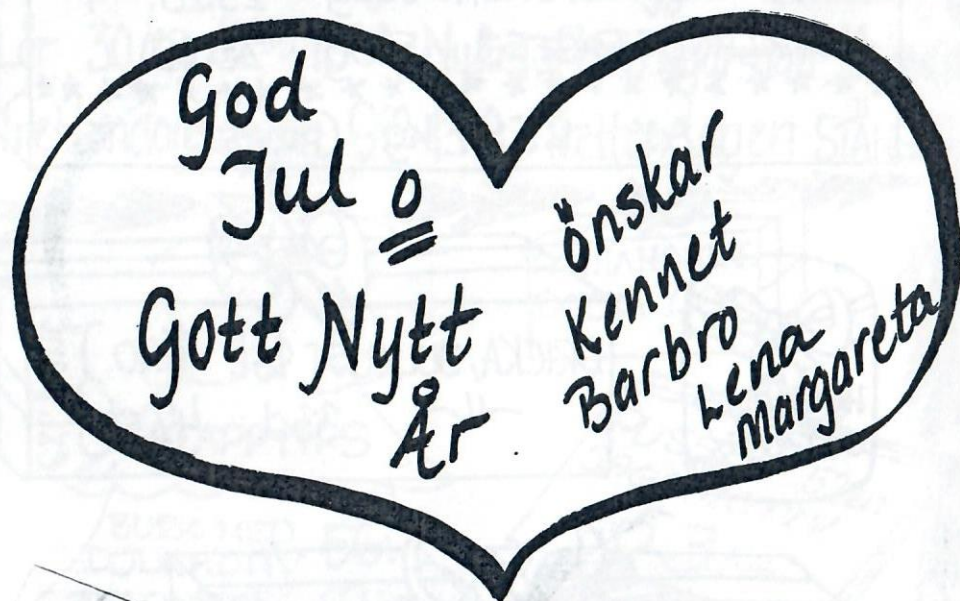 God
Jul o
Gott Nytt
År
önskar
Kennet
Barbro
Lena
Margareta